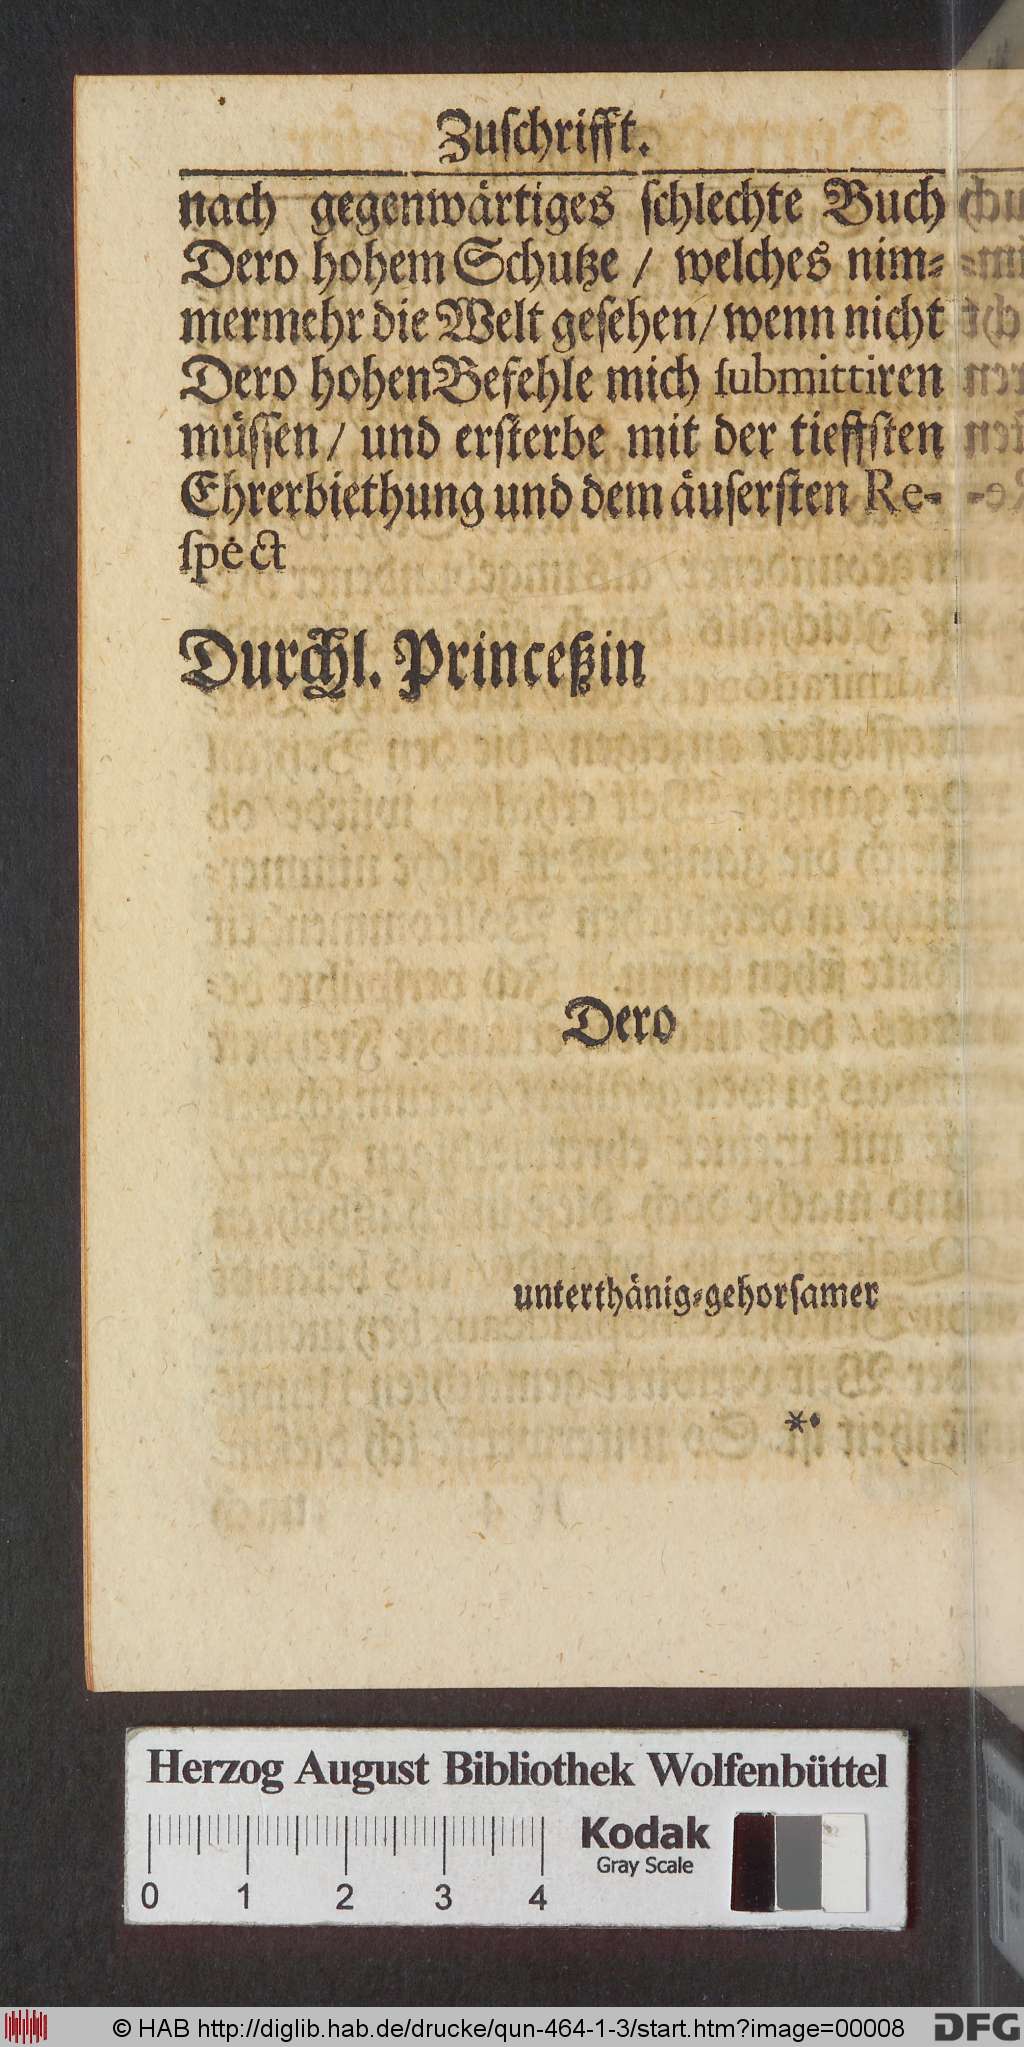 Zuſchrifft.
nach gegenwärtiges ſchlechte Buch
Dero hohem Schutze / welches nim-
mermehr die Welt geſehen / wenn nicht
Dero hohen Befehle mich ſubmittiren
müſſen / und erſterbe mit der tieffſten
Ehrerbiethung und dem äuſerſten Re-
ſpect
Durchl. Princeßin
Dero
unterthänig-gehorſamer
*.
Herzog August Bibliothek Wolfenbüttel
Kodak
Gray Scale
0 1 2 3 4
© HAB http://diglib.hab.de/drucke/qun-464-1-3/start.htm?image=00008
DFG